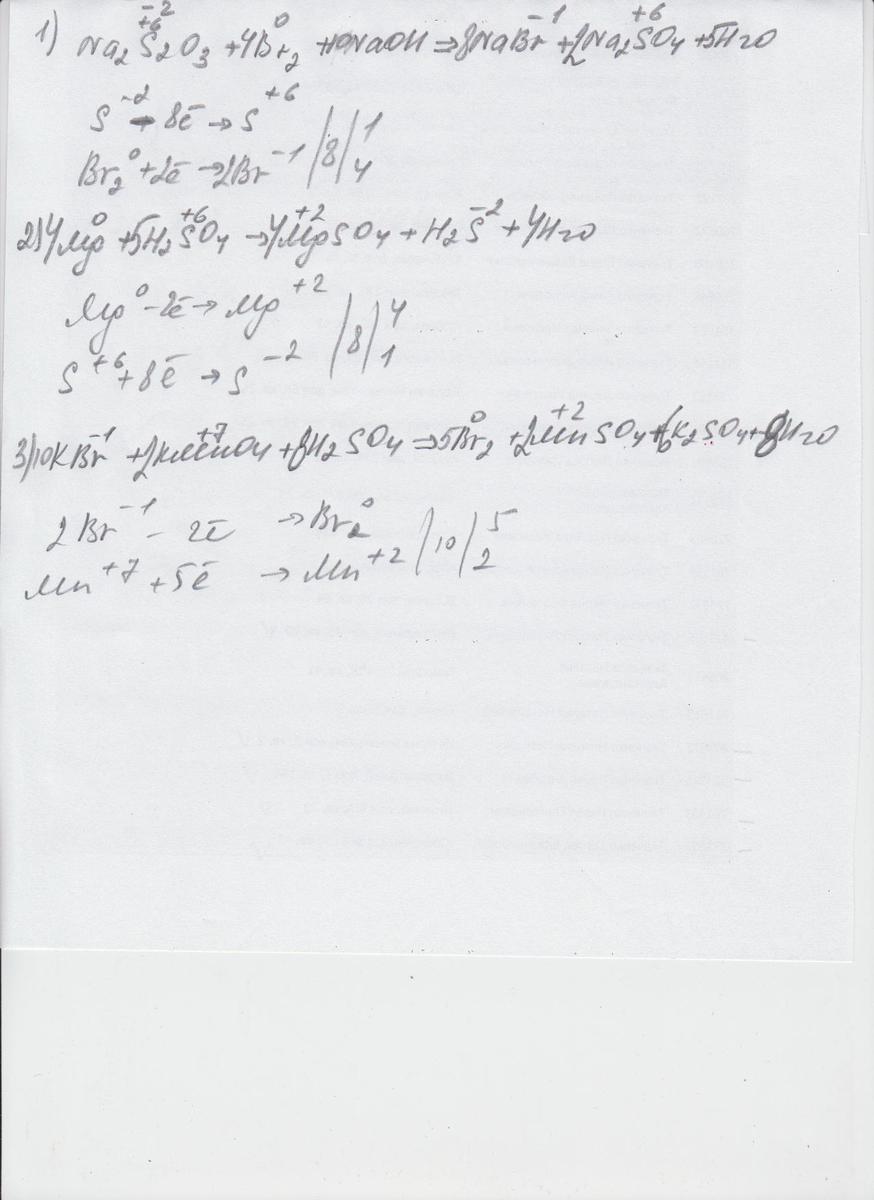 1) Na₂S⁻²⁺⁶₂O₃ + 4Br⁰₂ + 10NaOH → 8NaBr⁻¹ + 2Na₂S⁺⁶O₄ + 5H₂O
S⁻² - 8ē → S⁺⁶ | 8 | 1
Br₂⁰ + 2ē → 2Br⁻¹ | 4
2) 4Mg⁰ + 5H₂S⁺⁶O₄ → 4Mg⁺²SO₄ + H₂S⁻² + 4H₂O
Mg⁰ - 2ē → Mg⁺² | 8 | 4
S⁺⁶ + 8ē → S⁻² | 1
3) 10KBr⁻¹ + 2KMn⁺⁷O₄ + 8H₂SO₄ → 5Br⁰₂ + 2Mn⁺²SO₄ + 6K₂SO₄ + 8H₂O
2Br⁻¹ - 2ē → Br₂⁰ | 10 | 5
Mn⁺⁷ + 5ē → Mn⁺² | 2